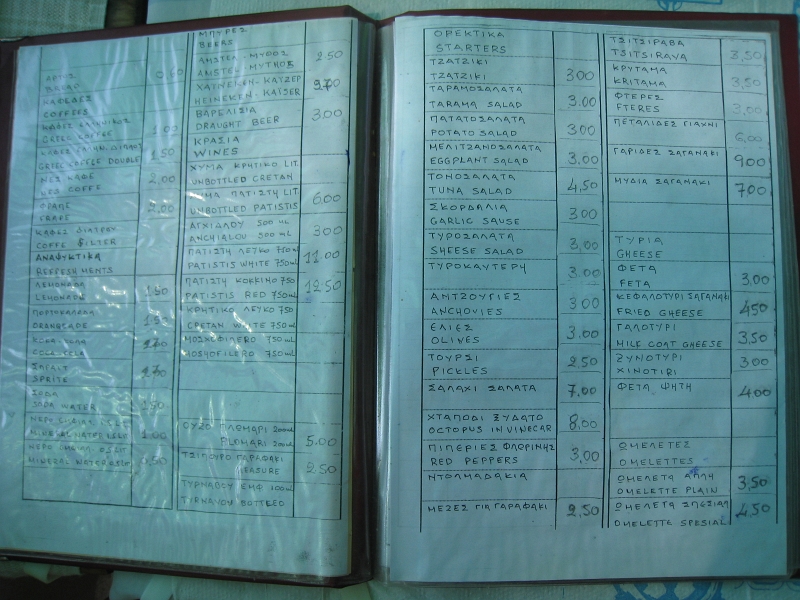 ΑΡΤΟΣ 0.50
BREAD
ΚΑΦΕΔΕΣ
COFFEES
ΚΑΦΕΣ ΕΛΛΗΝΙΚΟΣ 1.00
GREEK COFFEE
ΚΑΦΕΣ ΕΛΛΗΝ. ΔΙΠΛΟΣ 1.50
GREEK COFFEE DOUBLE
ΝΕΣ ΚΑΦΕ 2.00
NES COFFE
ΦΡΑΠΕ 2.00
FRAPE
ΚΑΦΕΣ ΦΙΛΤΡΟΥ
COFFE FILTER
ΑΝΑΨΥΚΤΙΚΑ
REEFESHMENTS
ΛΕΜΟΝΑΔΑ 1.50
LEMONADE
ΠΟΡΤΟΚΑΛΑΔΑ
ORANGEADE
ΚΟΚΑ ΚΟΛΑ
COCA COLA
ΣΠΡΑΙΤ
SPRITE
ΣΟΔΑ 1.50
SODA WATER
1.00
MINERAL WATER
0.50
MINERAL WATER
ΜΠΥΡΕΣ
BEERS
ΑΜΣΤΕΛ - ΜΥΘΟΣ 2.50
AMSTEL - MYTHOS
ΧΑΙΝΕΚΕΝ - ΚΑΥΖΕΡ
HEINEKEN - KAISER
ΒΑΡΕΛΙΣΙΑ 3.00
DRAUGHT BEER
ΚΡΑΣΙΑ
WINES
ΧΥΜΑ ΚΡΗΤΙΚΟ LIT.
UNBOTTLED CRETAN
ΧΥΜΑ ΠΑΤΙΣΤΗ LIT 6.00
UNBOTTLED PATISTIS
ΑΓΧΙΑΛΟΥ 500 ML 3.00
ANCHIALOU 500 ML
ΠΑΤΙΣΤΗ ΛΕΥΚΟ 750ML 11.00
PATISTIS WHITE 750ML
ΠΑΤΙΣΤΗ ΚΟΚΚΙΝΟ 750 12.50
PATISTIS RED 750ML
ΚΡΗΤΙΚΟ ΛΕΥΚΟ 750
CRETAN WHITE 750ML
ΜΟΣΧΟΦΙΛΕΡΟ 750ML
MOSHOFILERO 750ML
ΟΥΖΟ ΠΛΩΜΑΡΙ 200ML 5.00
PLOMARI 200ML
ΤΣΙΠΟΥΡΟ ΓΑΡΑΦΑΚΙ 2.50
MEASURE
ΤΥΡΝΑΒΟΥ ΕΜΦ 100ML
TIRNAVOU BOTTLED
ΟΡΕΚΤΙΚΑ
STARTERS
ΤΖΑΤΖΙΚΙ 3.00
TZATZIKI
ΤΑΡΑΜΟΣΑΛΑΤΑ 3.00
TARAMA SALAD
ΠΑΤΑΤΟΣΑΛΑΤΑ 3.00
POTATO SALAD
ΜΕΛΙΤΖΑΝΟΣΑΛΑΤΑ 3.00
EGGPLANT SALAD
ΤΟΝΟΣΑΛΑΤΑ 4.50
TUNA SALAD
ΣΚΟΡΔΑΛΙΑ 3.00
GARLIC SAUSE
ΤΥΡΟΣΑΛΑΤΑ 3.00
SHEESE SALAD
ΤΥΡΟΚΑΥΤΕΡΗ 3.00
ΑΝΤΖΟΥΓΙΕΣ 3.00
ANCHOVIES
ΕΛΙΕΣ 3.00
OLIVES
ΤΟΥΡΣΙ 2.50
PICKLES
ΣΑΛΑΧΙ ΣΑΛΑΤΑ 7.00
ΧΤΑΠΟΔΙ ΞΥΔΑΤΟ 8.00
OCTOPUS IN VINECAR
ΠΙΠΕΡΙΕΣ ΦΛΩΡΙΝΗΣ 3.00
RED PEPPERS
ΝΤΟΛΜΑΔΑΚΙΑ
ΜΕΖΕΣ ΓΙΑ ΓΑΡΑΦΑΚΙ 2.50
ΤΣΙΤΣΙΡΑΒΑ 3.50
TSITSIRAVA
ΚΡΥΤΑΜΑ 3.50
KRITAMA
ΦΤΕΡΕΣ 3.00
FTERES
ΠΕΤΑΛΙΔΕΣ ΓΙΑΧΝΙ 6.00
ΓΑΡΙΔΕΣ ΣΑΓΑΝΑΚΙ 9.00
ΜΥΔΙΑ ΣΑΓΑΝΑΚΙ 7.00
ΤΥΡΙΑ
GHEESE
ΦΕΤΑ 3.00
FETA
ΚΕΦΑΛΟΤΥΡΙ ΣΑΓΑΝΑΚΙ 4.50
FRIED GHEESE
ΓΑΛΟΤΥΡΙ 3.50
MILK COAT GHEESE
ΞΥΝΟΤΥΡΙ 3.00
XINOTIRI
ΦΕΤΑ ΨΗΤΗ 4.00
ΩΜΕΛΕΤΕΣ
OMELETTES
ΩΜΕΛΕΤΑ ΑΠΛΗ 3.50
OMELETTE PLAIN
ΩΜΕΛΕΤΑ ΣΠΕΣΙΑΛ 4.50
OMELETTE SPESIAL